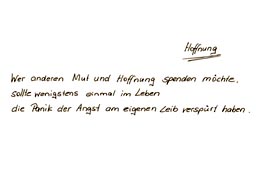 Hoffnung
Wer anderen Mut und Hoffnung spenden möchte,
sollte wenigstens einmal im Leben
die Panik der Angst am eigenen Leib verspürt haben.